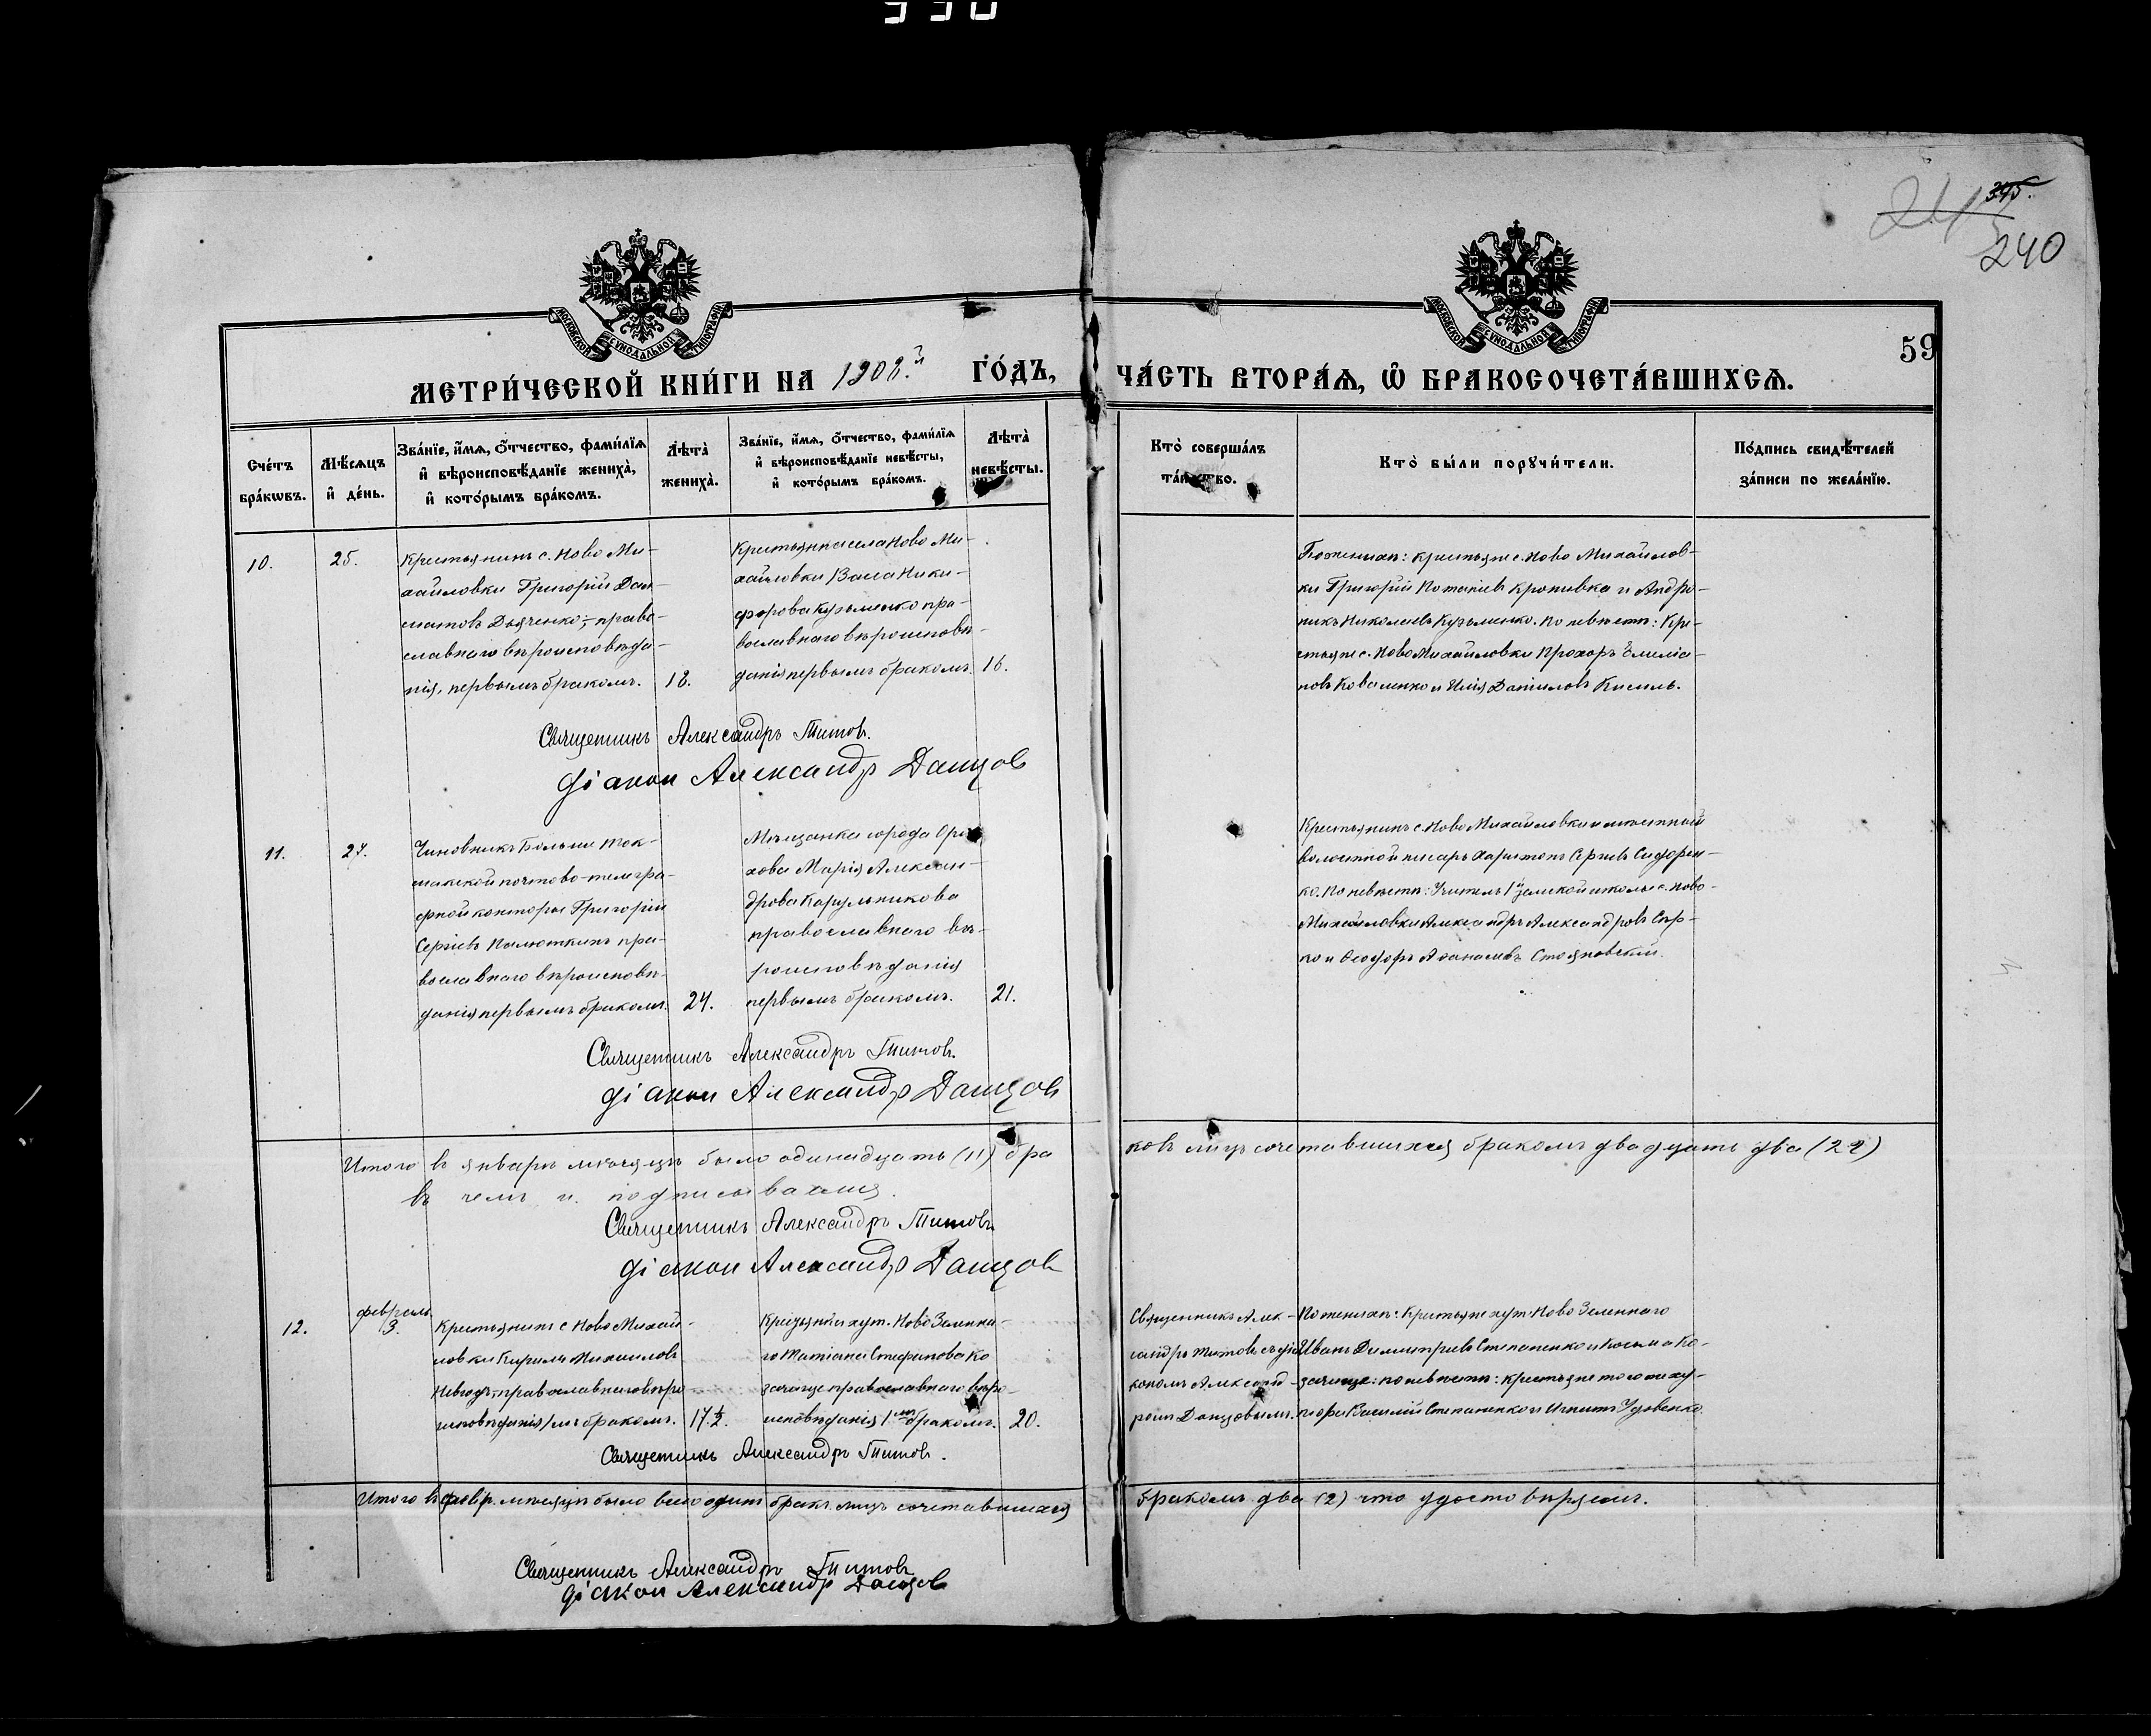 345.
240
59
МОСКОВСКОЙ СУНОДАЛЬНОЙ ТИПОГРАФІИ
МОСКОВСКОЙ СУНОДАЛЬНОЙ ТИПОГРАФІИ
МЕТРИ́ЧЕСКОЙ КНИ́ГИ НА 1908.й ГО́ДЪ, ЧА́СТЬ ВТОРА́Ѧ, Ѡ҆ БРАКОСОЧЕТА́ВШИХСѦ.
Сче́тъ бра́кѡвъ.
Мѣ́сѧцъ и҆ де́нь.
Зва́нїе, и҆́мѧ, ѻ҆́тчество, фами́лїѧ
и҆ вѣроисповѣ́данїе жениха̀,
и҆ кото́рымъ бра́комъ.
Лѣта̀ жениха̀.
Зва́нїе, и҆́мѧ, ѻ҆́тчество, фами́лїѧ
и҆ вѣроисповѣ́данїе невѣ́сты,
и҆ кото́рымъ бра́комъ.
Лѣта̀ невѣ́сты.
Кто̀ соверша́лъ
та́инство.
Кто̀ бы́ли порꙋчи́тели.
По́дпись свидѣ́телей
за́писи по жела́нїю.
10.
25.
Крестьянинъ с. Ново Ми-
хайловки Григорій Дал-
матовъ Дьяченко; право-
славнаго вѣроисповѣда-
нія, первымъ бракомъ.
18.
Крестьянка села Ново Ми-
хайловки Васса Ники-
форова Кузьменко пра-
вославнаго вѣроисповѣ-
данія первымъ бракомъ.
16.
По женихѣ: крестьяне с. Ново Михайлов-
ки Григорій Потапіевъ Кропивка и Андро-
никъ Николаевъ Кузьменко. По невѣстѣ: Кре-
стьяне с. Ново Михайловки Прохоръ Емеліа-
новъ Коваленко и Илія Даніиловъ Кисиль.
Священникъ Александръ Титовъ.
Діаконъ Александр Данцов
11.
27.
Чиновникъ Больше Ток-
макской почтово-телегра-
фной конторы Григорій
Сергіевъ Полюткинъ пра-
вославнаго вѣроисповѣ-
данія первымъ бракомъ.
24.
Мѣщанка города Орѣ-
хова Марія Алексан-
дрова Карульникова
православнаго вѣ-
роисповѣданія
первымъ бракомъ.
21.
Крестьянинъ с. Ново Михайловки и мѣстный
волостной писарь Харитонъ Сергіевъ Сидорен-
ко. По невѣстѣ: Учитель 1й земской школы с. Ново-
Михайловки Александръ Александровъ Сѣр-
ко и Ѳеодоръ Аѳанасіевъ Стояновскій.
Священникъ Александръ Титовъ.
Діакон Александр Данцов
Итого въ январѣ мѣсяцѣ было одинадцать (11) бра
ковъ лицъ сочетавшихся бракомъ двадцать два (22)
въ чемъ и подписываемся.
Священникъ Александръ Титовъ
Діакон Александр Данцов
12.
февраль
3.
Крестьянинъ с Ново Михай-
ловки Кирилъ Михаиловъ
Неводъ, православнаго вѣро
исповѣданія 1мъ бракомъ.
17.½.
Крестьянка хут. Ново Зелена-
го Татіана Стефанова Ко
зачище православнаго вѣро-
исповѣданія 1мъ бракомъ.
20.
Священникъ Алек-
сандръ Титовъ съ діа
кономъ Александ-
ромъ Данцовымъ.
По женихѣ: Крестьяне хут. Ново Зеленаго
Иванъ Димитріевъ Степаненко и Косьма Ко-
зачище: по невѣстѣ: крестьяне того же ху-
тора Василій Степаненко и Игнатъ Удовенко.
Священникъ Александръ Титовъ.
Итого въ февр. мѣсяцѣ было всего одинъ бракъ лицъ сочетавшихся
бракомъ два (2) что удостовѣряемъ.
Священникъ Александръ Титовъ
Діакон Александр Данцов